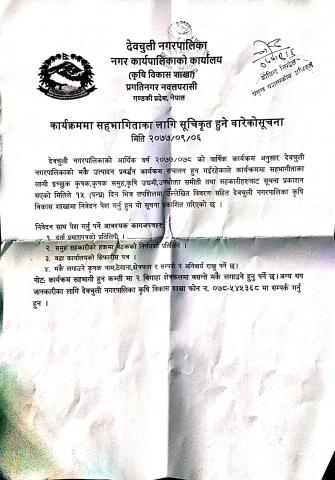 देवचुली नगरपालिका
नगर कार्यपालिकाको कार्यालय
(कृषि विकास शाखा)
प्रगतिनगर नवलपरासी
गण्डकी प्रदेश, नेपाल
कार्यक्रममा सहभागिताका लागि सूचिकृत हुने वारेकोसूचना
मिति २०७७/०९/०६
देवचुली नगरपालिकाको आर्थिक वर्ष २०७७/०७८ को वार्षिक कार्यक्रम अनुसार देवचुली
नगरपालिकाको मकै उत्पादन प्रबर्द्धन कार्यक्रम संचालन हुन गईरहेकाले कार्यक्रममा सहभागीताका
लागी इच्छुक कृषक,कृषक समुह,कृषि उद्यमी,उपभोक्ता समीती तथा सहकारीहरुबाट सूचना प्रकाशन
भएको मितिले १५ (पन्ध्र) दिन भित्र तपशिलमा उल्लेखित विवरण सहित देवचुली नगरपालिका कृषि
विकास शाखामा निवेदन पेश गर्नु हुन यो सूचना प्रकाशित गरिएको छ ।
निवेदन साथ पेश गर्नु पर्ने आवश्यक कागजपत्रहरु
१. दर्ता प्रमाणपत्रको प्रतिलिपी ।
२. समुह सहकारीको हकमा बैठकको निर्णयको प्रतिलिपी ।
३. वडा कार्यालयको सिफारीस पत्र ।
४. मकै लगाउने कृषक नाम,ठेगाना,क्षेत्रफल र सम्पर्क नं अनिवार्य राख्नु पर्ने छ।
नोट: कार्यक्रम सहभागी हुन कम्ती मा २ बिगाहा क्षेत्रफलमा बसन्ते मकै लगाउने हुनु पर्ने छ।अन्य थप
जानकारीका लागि देवचुली नगरपालिका कृषि विकास शाखा फोन न. ०७८-५४५३६८ मा सम्पर्क गर्नु
हुन ।